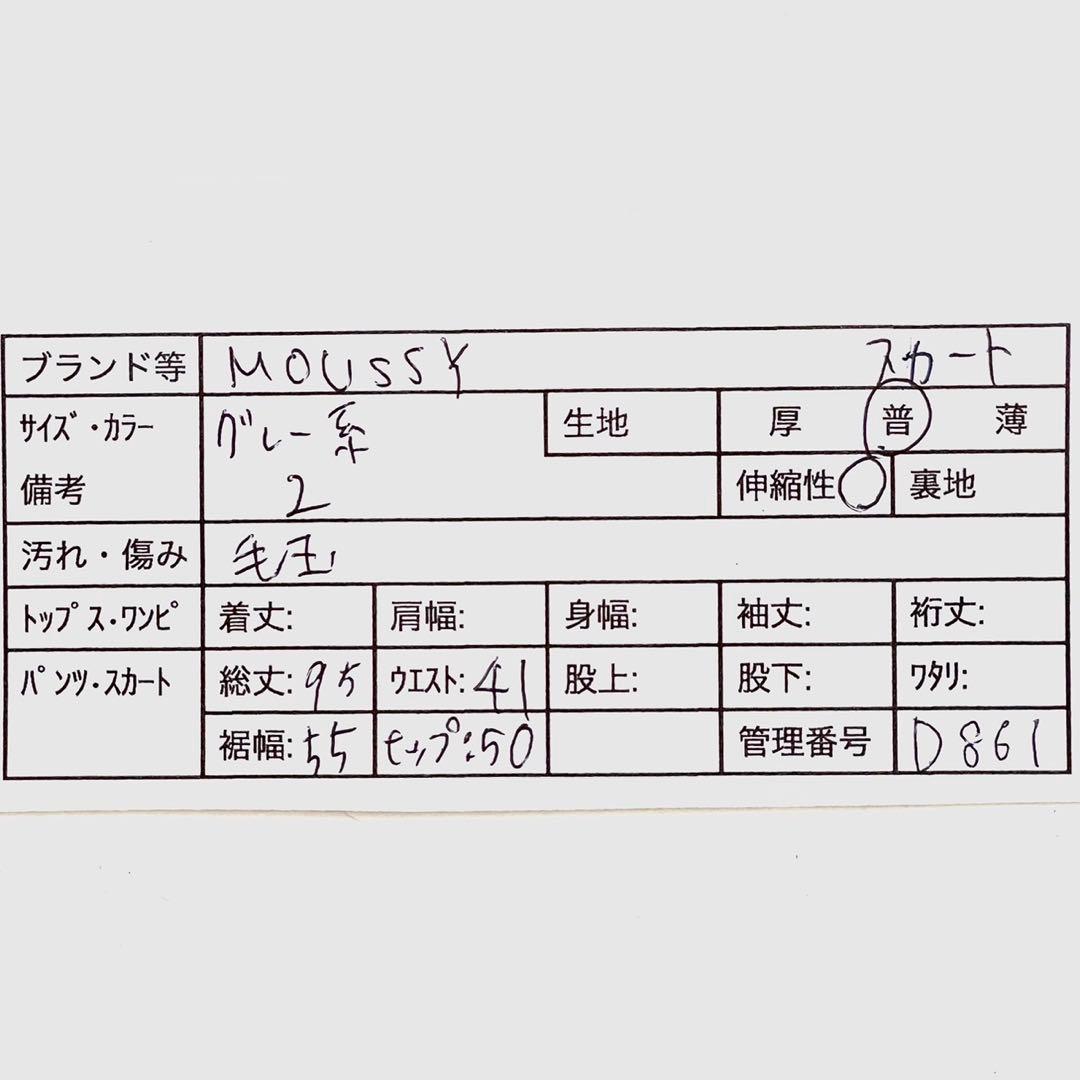 ブランド等 MOUSSY スカート
サイズ・カラー グレー系 生地 厚 普 薄
備考 2 伸縮性 裏地
汚れ・傷み 毛玉
トップス・ワンピ 着丈: 肩幅: 身幅: 袖丈: 裄丈:
パンツ・スカート 総丈:95 ウエスト:41 股上: 股下: ワタリ:
裾幅:55 ヒップ:50 管理番号 D861